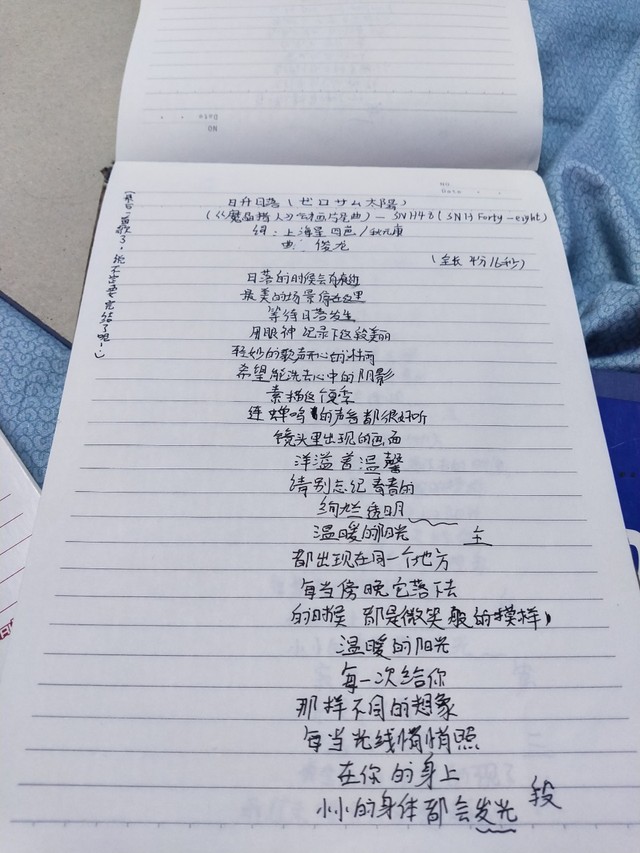 NO
Date
日升日落(ゼロサム太陽)
(《魔笛指人》动画片尾曲) — SNH48 (SNH Forty-eight)
词:上海星四画/秋元康
曲:俊龙
(全长 4分16秒)
日落的时候会有夜边
最美的场景停在这里
等待日落发生
用眼神 记录下这段美丽
轻妙的歌声开心的
希望能洗去心中的阴影
素描这夏季
连蝉鸣 的声音都很好听
镜头里出现的画面
洋溢着温馨
请别忘记青春的
绚烂透明
温暖的阳光 主
都出现在同一个地方
每当傍晚它落下去
的时候 都是微笑般的模样)
温暖的阳光
每一次给你
那样不同的想象
每当光线悄悄照
在你的身上
小小的身体都会发光 段